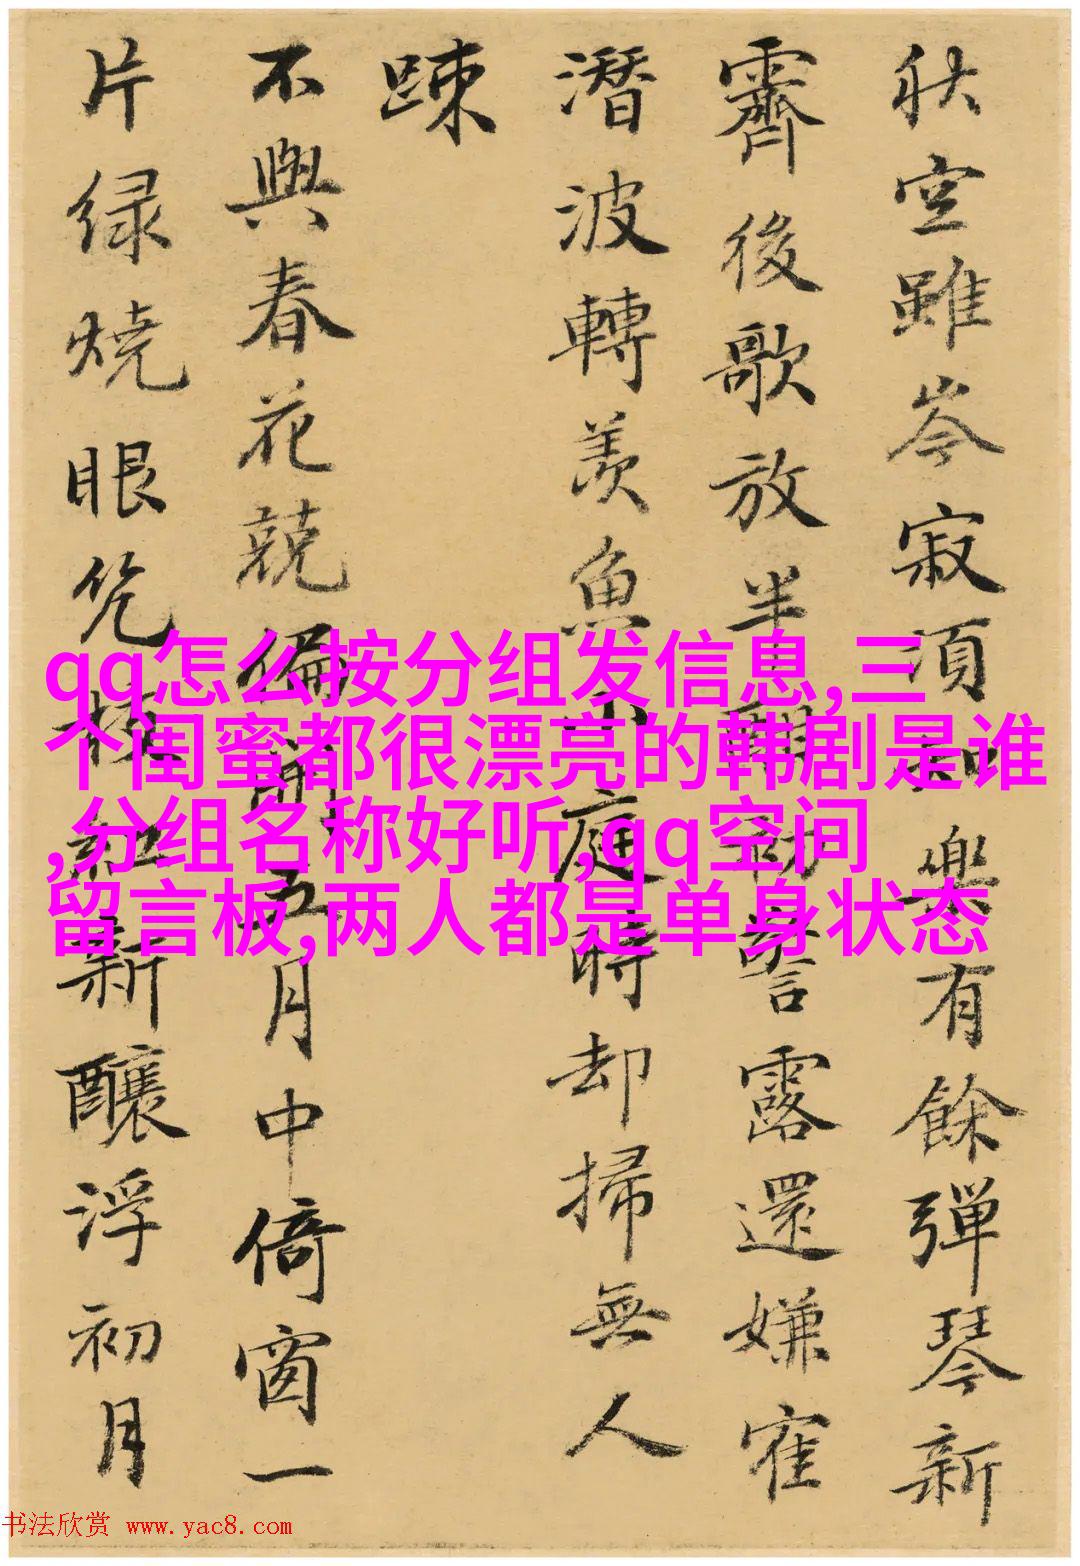 秋空雖岑寂須知樂有餘彈琴新
霽後歌放半酣初警露還嫌寉
潛波轉羨魚小庭時却掃無人
踈
不與春花競偏開五月中倚窗一
片緑燒眼枝紅新釀浮初月
qq怎么按分组发信息,三
个闺蜜都很漂亮的韩剧是谁
,分组名称好听,qq空间
留言板,两人都是单身状态
书法欣赏 www.yac8.com